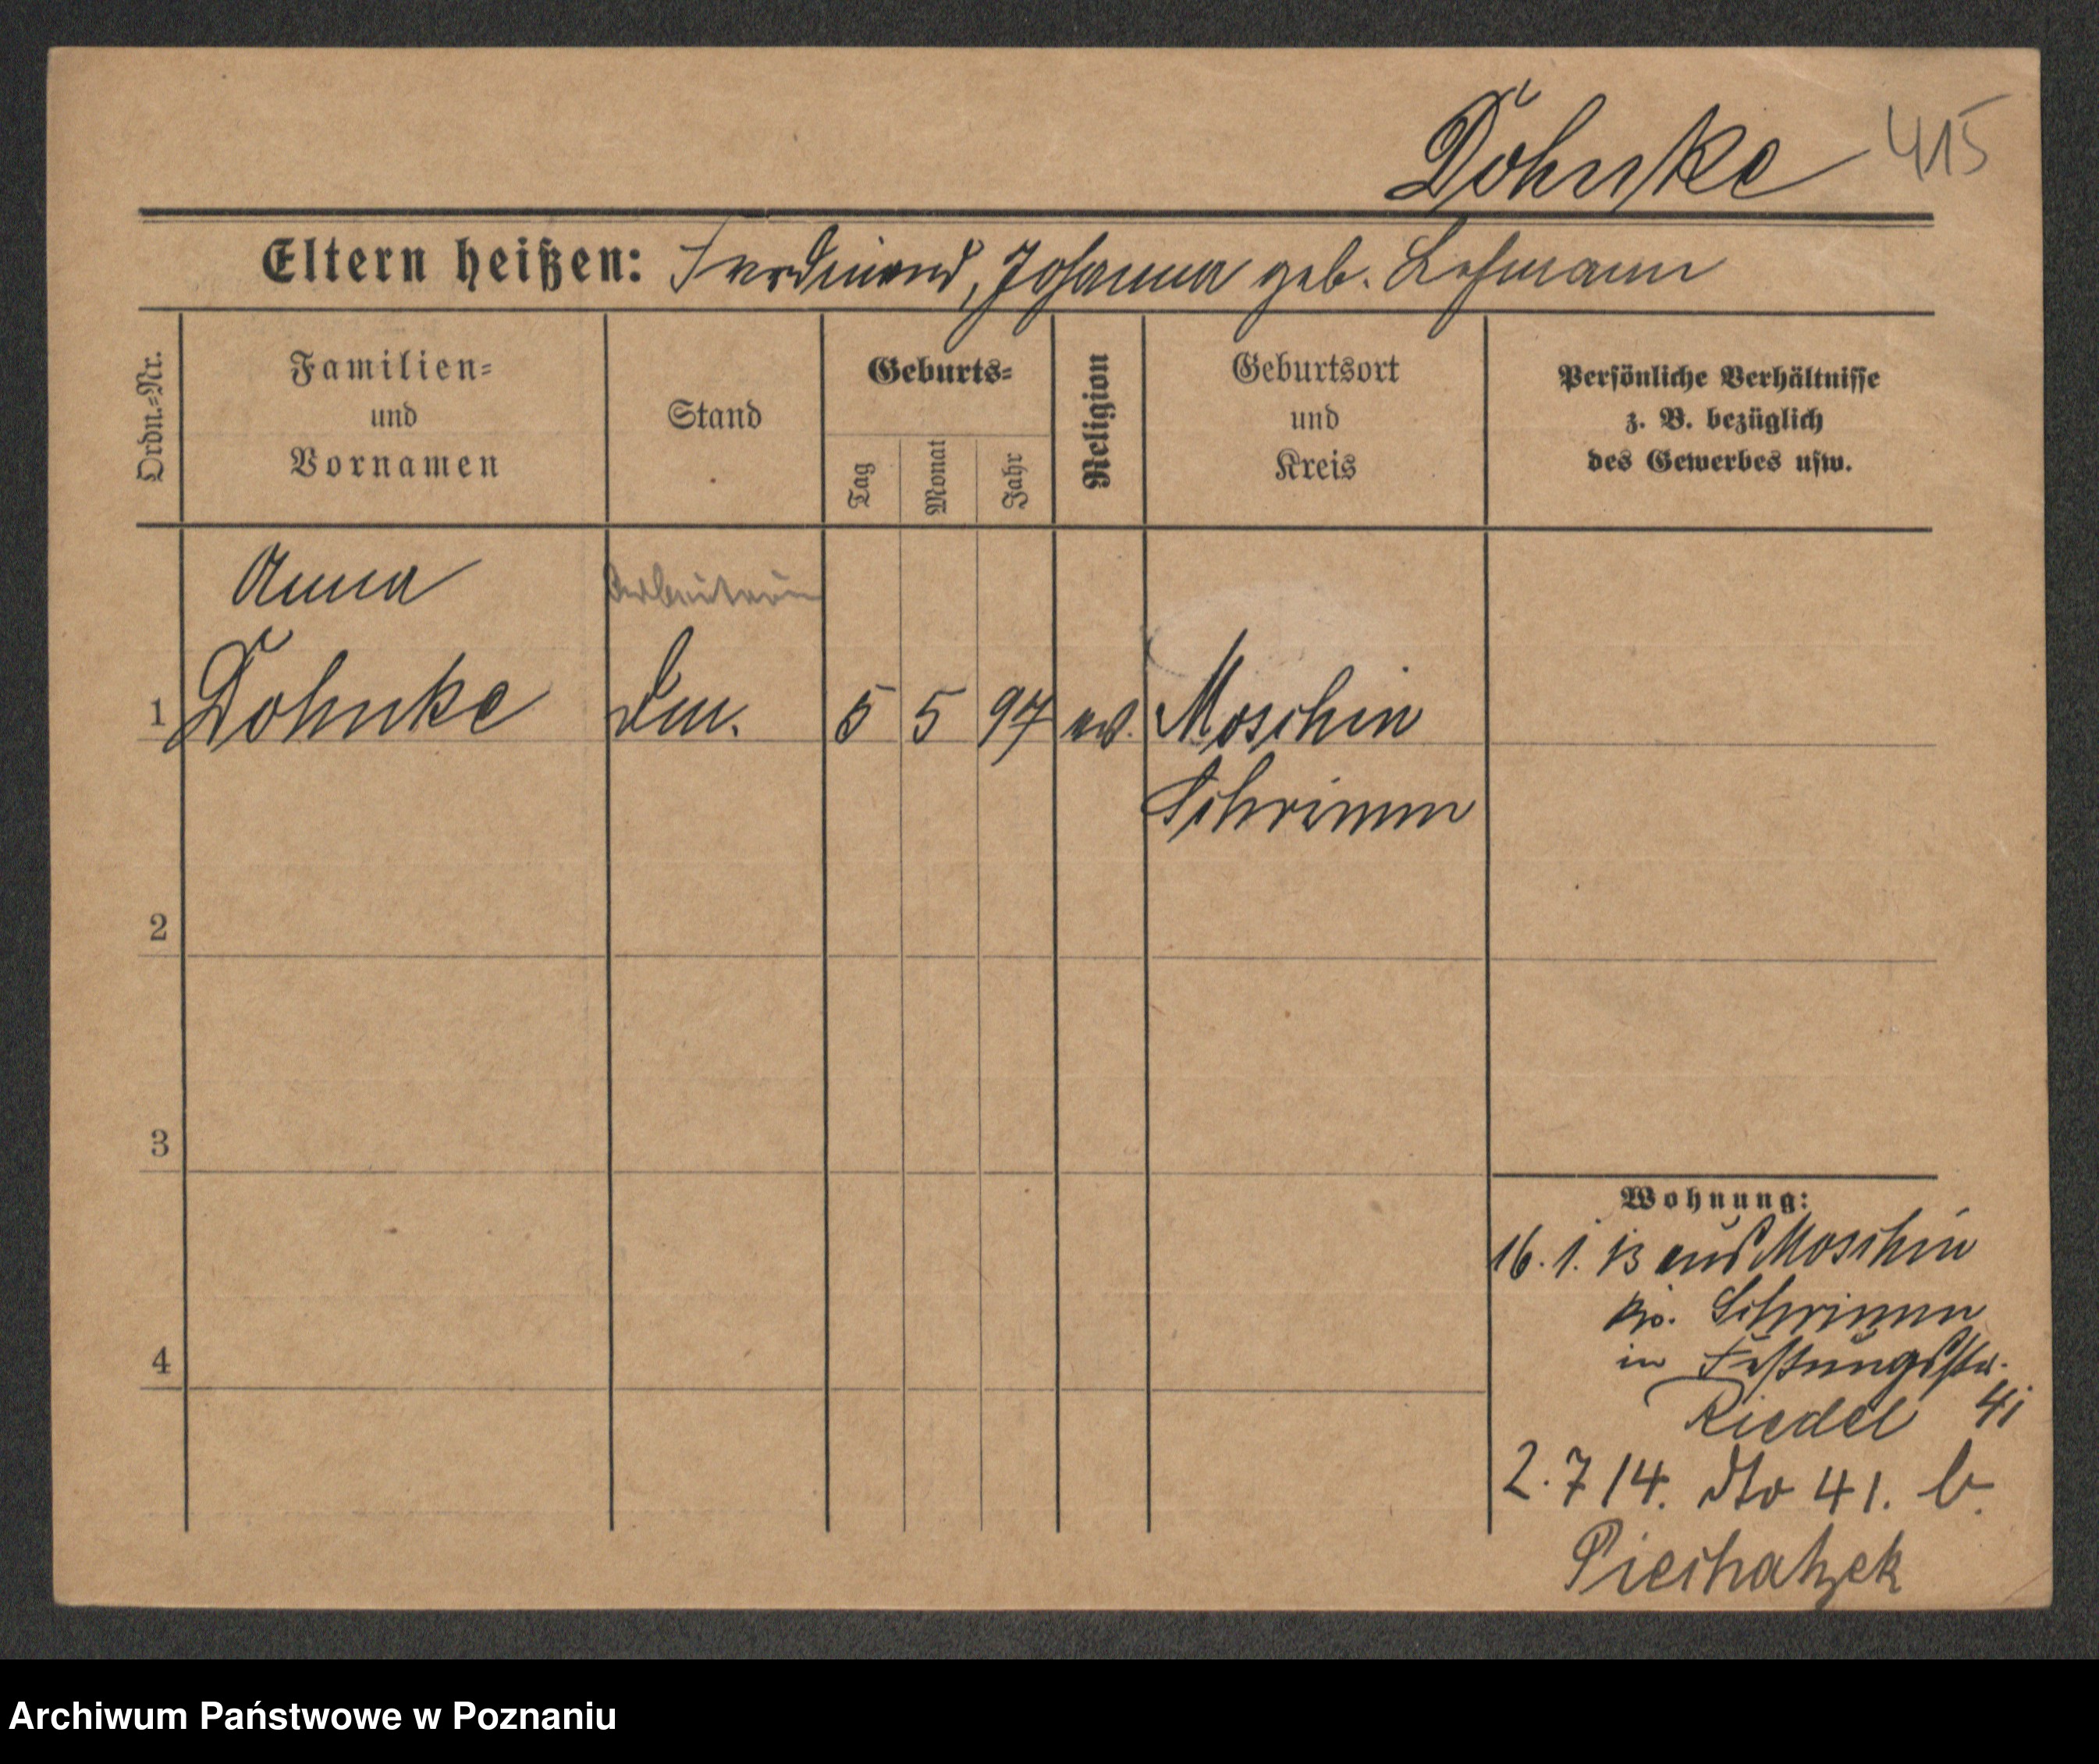 Dohnke 415
Eltern heißen: Ferdinand, Johanna geb. Lehmann
Ordn.=Nr.
Familien=
und
Vornamen
Stand
Geburts=
Tag
Monat
Jahr
Religion
Geburtsort
und
Kreis
Persönliche Verhältnisse
z. B. bezüglich
des Gewerbes usw.
Anna Arbeiterin
1 Dohnke 5 5 97 ev. Moschin
Schrimm
2
3
4
Wohnung:
16. 1. 13 aus Moschin
Kr. Schrimm
in Festungsstr.
Riedel 41
2. 7 14. dto 41. b.
Piechatzek
Archiwum Państwowe w Poznaniu